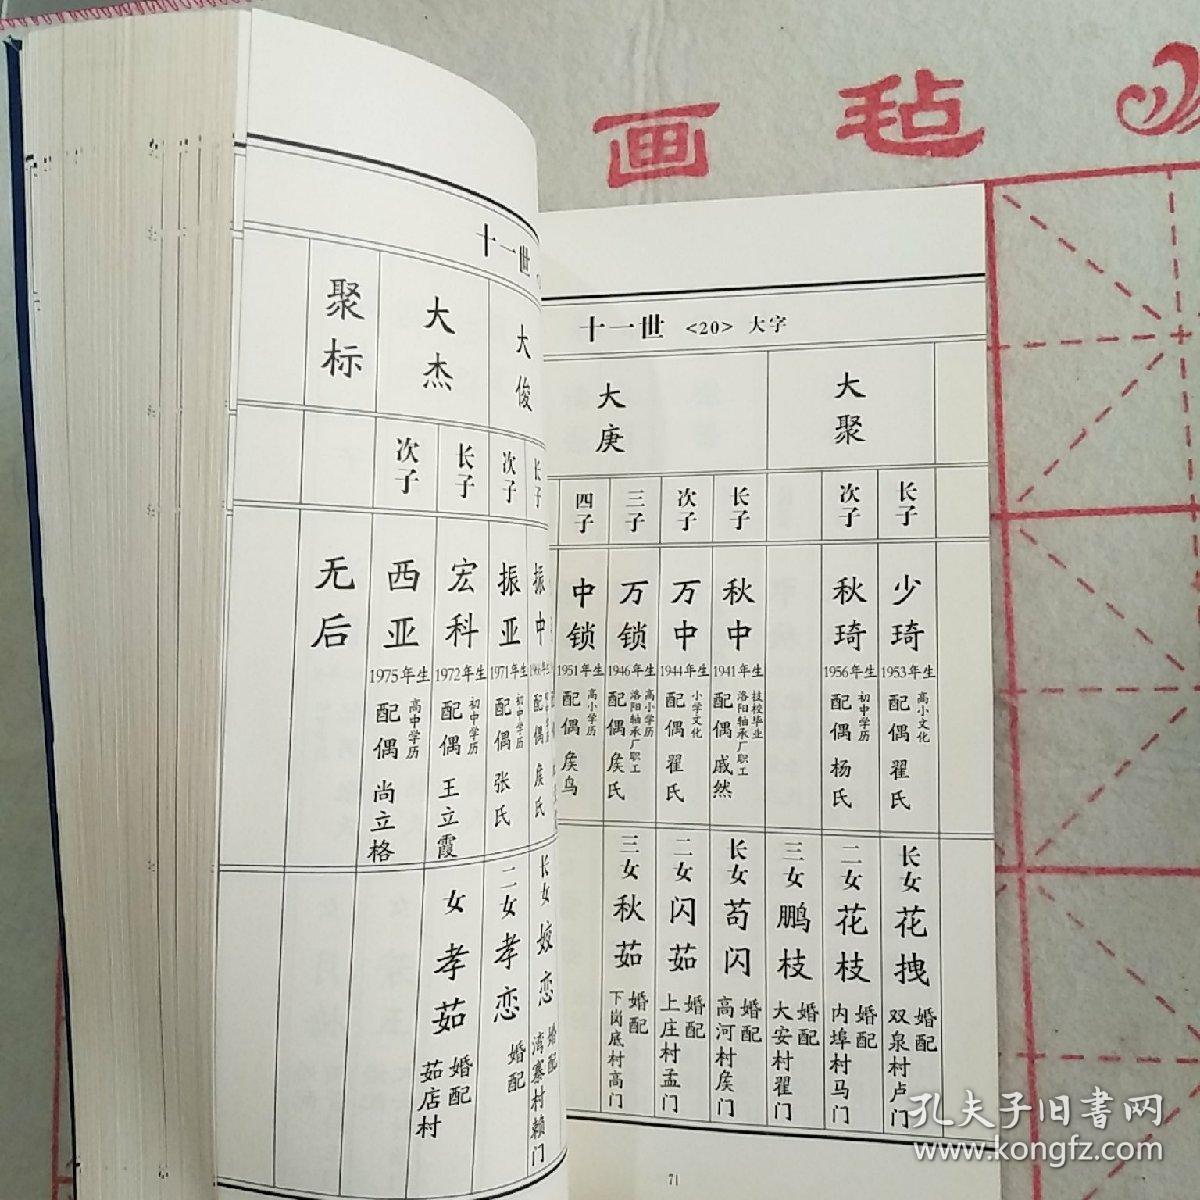 画毡
十一世 <20> 大字
大聚
长子
少琦
1953年生
高小文化
配偶 翟氏
长女 花拽
婚配
双泉村卢门
次子
秋琦
1956年生
初中学历
配偶 杨氏
二女 花枝
婚配
内埠村马门
三女 鹏枝
婚配
大安村翟门
大庚
长子
秋中
1941年生
技校毕业
洛阳轴承厂职工
配偶 戚然
长女 苟闪
婚配
高河村侯门
次子
万中
1944年生
小学文化
配偶 翟氏
二女 闪茹
婚配
上庄村孟门
三子
万锁
1946年生
高小学历
洛阳轴承厂职工
配偶 侯氏
三女 秋茹
婚配
下岗底村高门
四子
中锁
1951年生
高小学历
配偶 侯鸟
71
十一世
大俊
长子
振中
配偶 侯氏
长女 姣恋
湾寨村赖门
次子
振亚
1971年生
初中学历
配偶 张氏
二女 孝恋
婚配
大杰
长子
宏科
1972年生
初中学历
配偶 王立霞
女 孝茹
婚配
茹店村
次子
西亚
1975年生
高中学历
配偶 尚立格
聚标
无后
孔夫子旧书网
www.kongfz.com